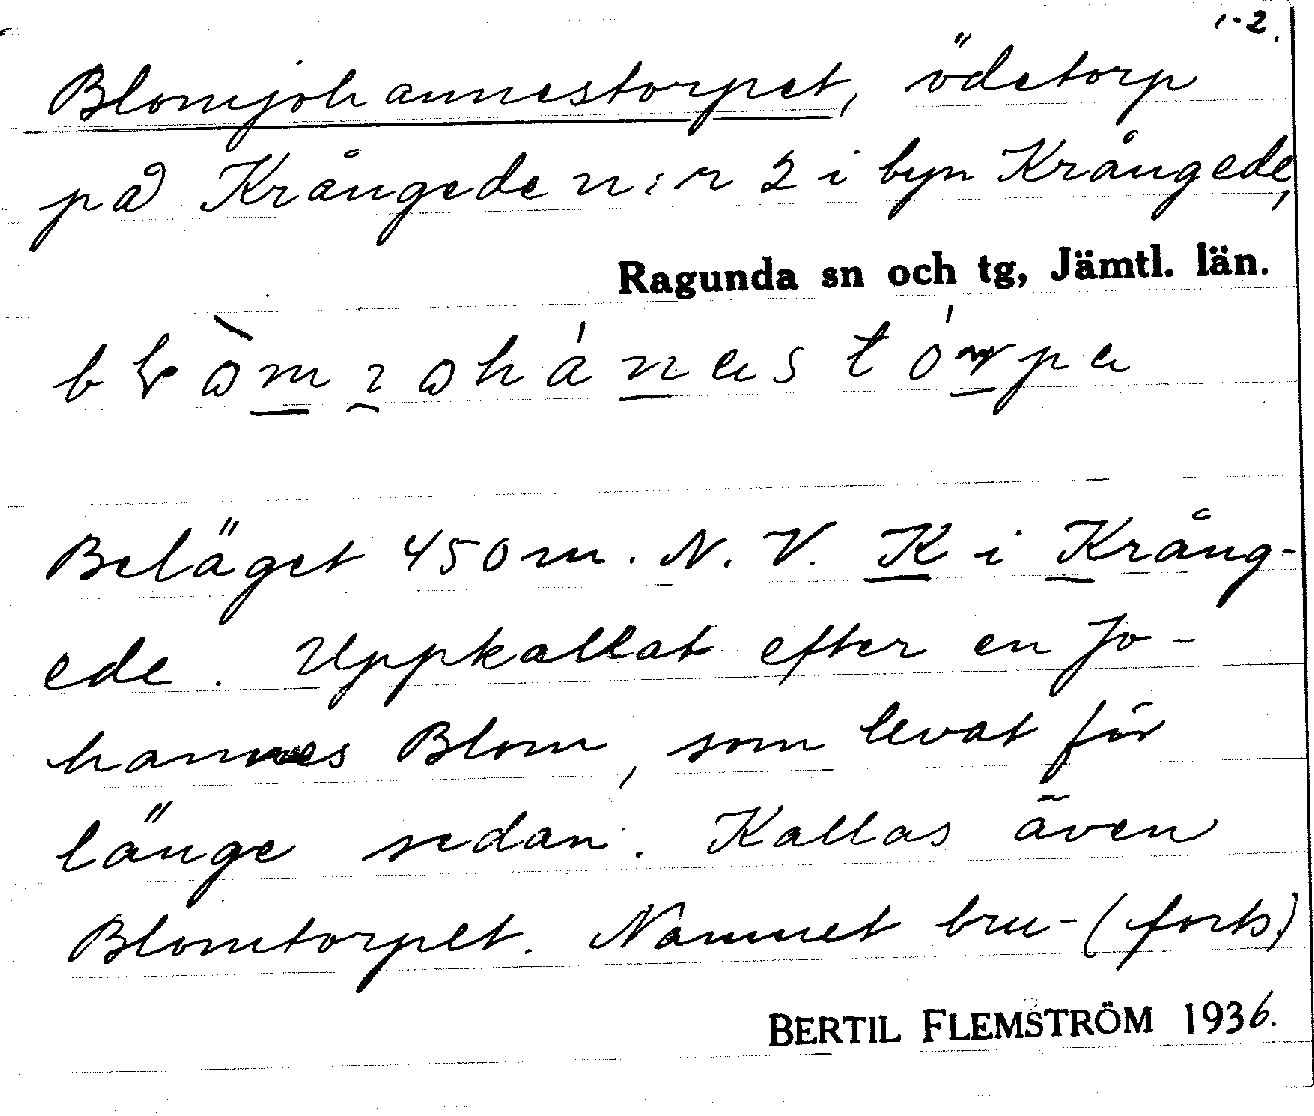 1-2.
Blomjohannestorpet, ödetorp
på Krångede n:r 2 i byn Krångede,
Ragunda sn och tg, Jämtl. län.
Beläget 450 m. N. V. K i Krång-
ede. Uppkallat efter en Jo-
hannes Blom, som levat för
länge sedan. Kallas även
Blomtorpet. Namnet bru- (forts)
BERTIL FLEMSTRÖM 1936.